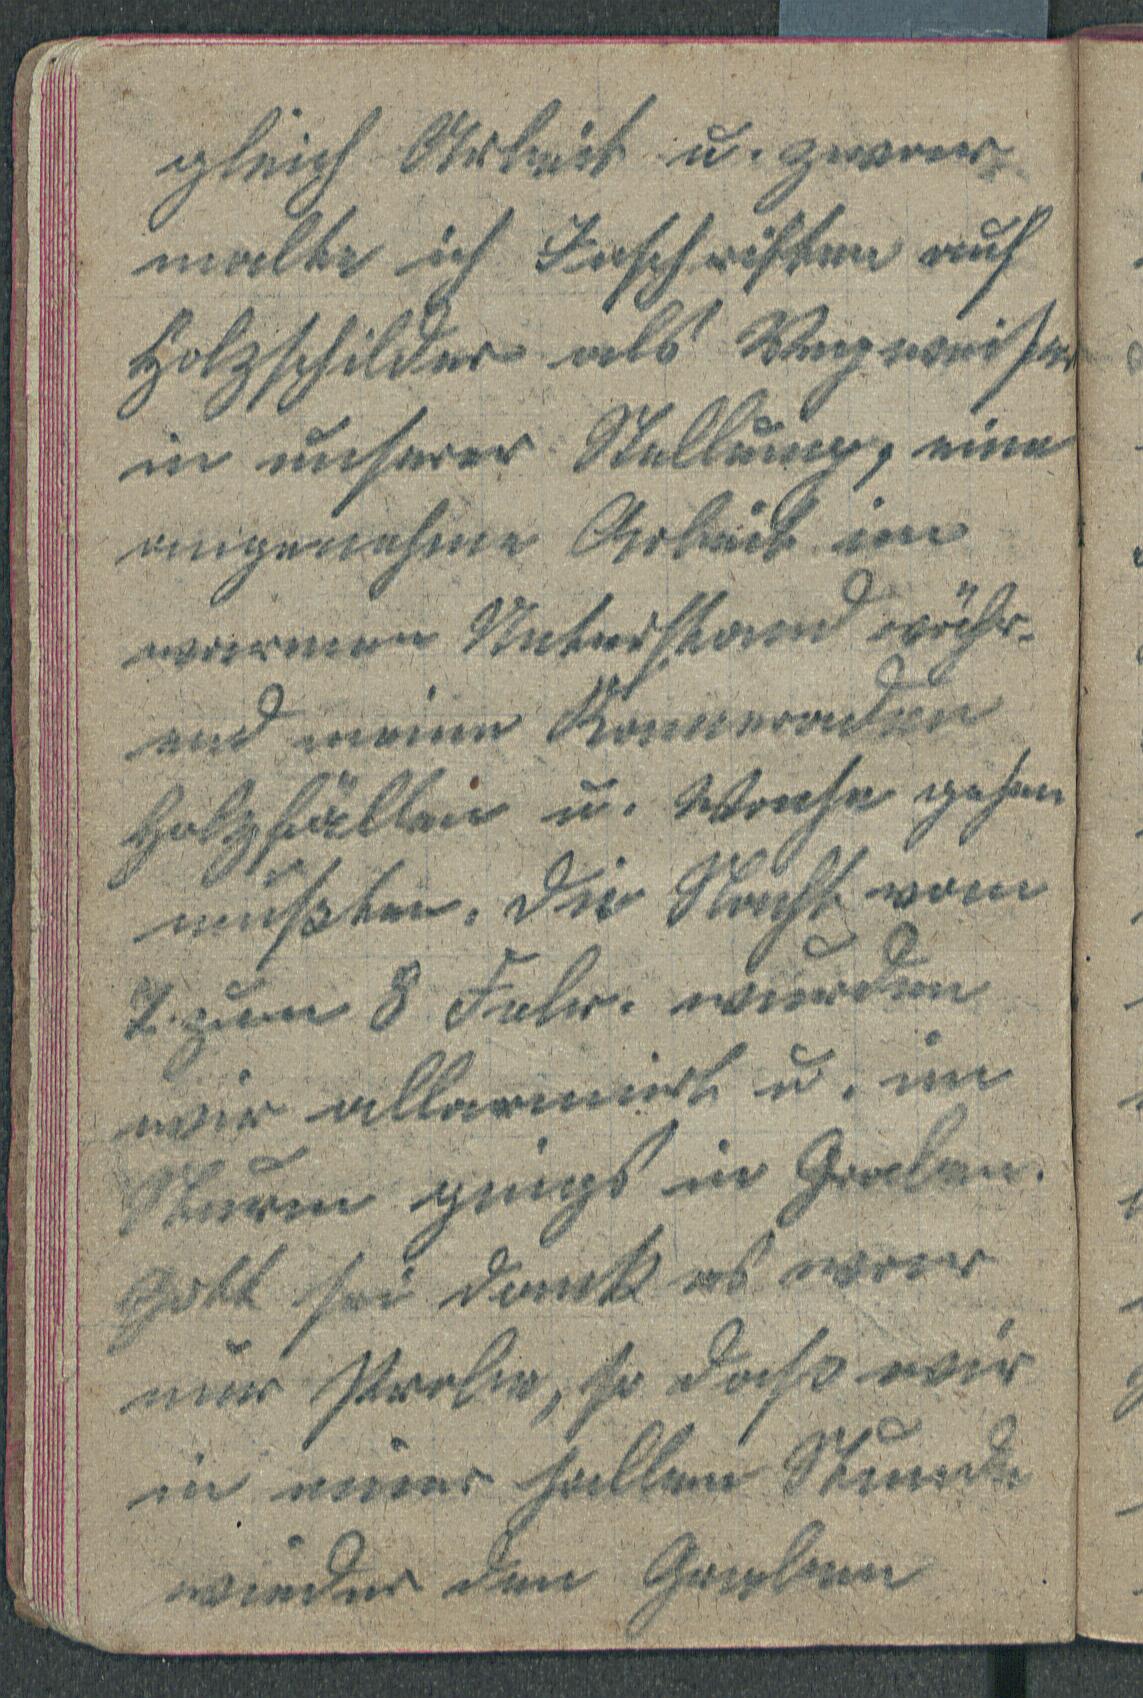 gleich Arbeit u. zwar
malte ich Inschriften auf
Holzschilder als Wegweiser
in unserer Stellung, eine
angenehme Arbeit im
warmen Unterstand währ-
end meine Kameraden
Holzfällen u. Wache gehen
mußten. Die Nacht vom
7. zum 8 Febr. wurden
wir allarmirt u. im
Sturm gings in Graben.
Gott sei dank es war
nur Probe, so daß wir
in einer halben Stunde
wieder den Graben